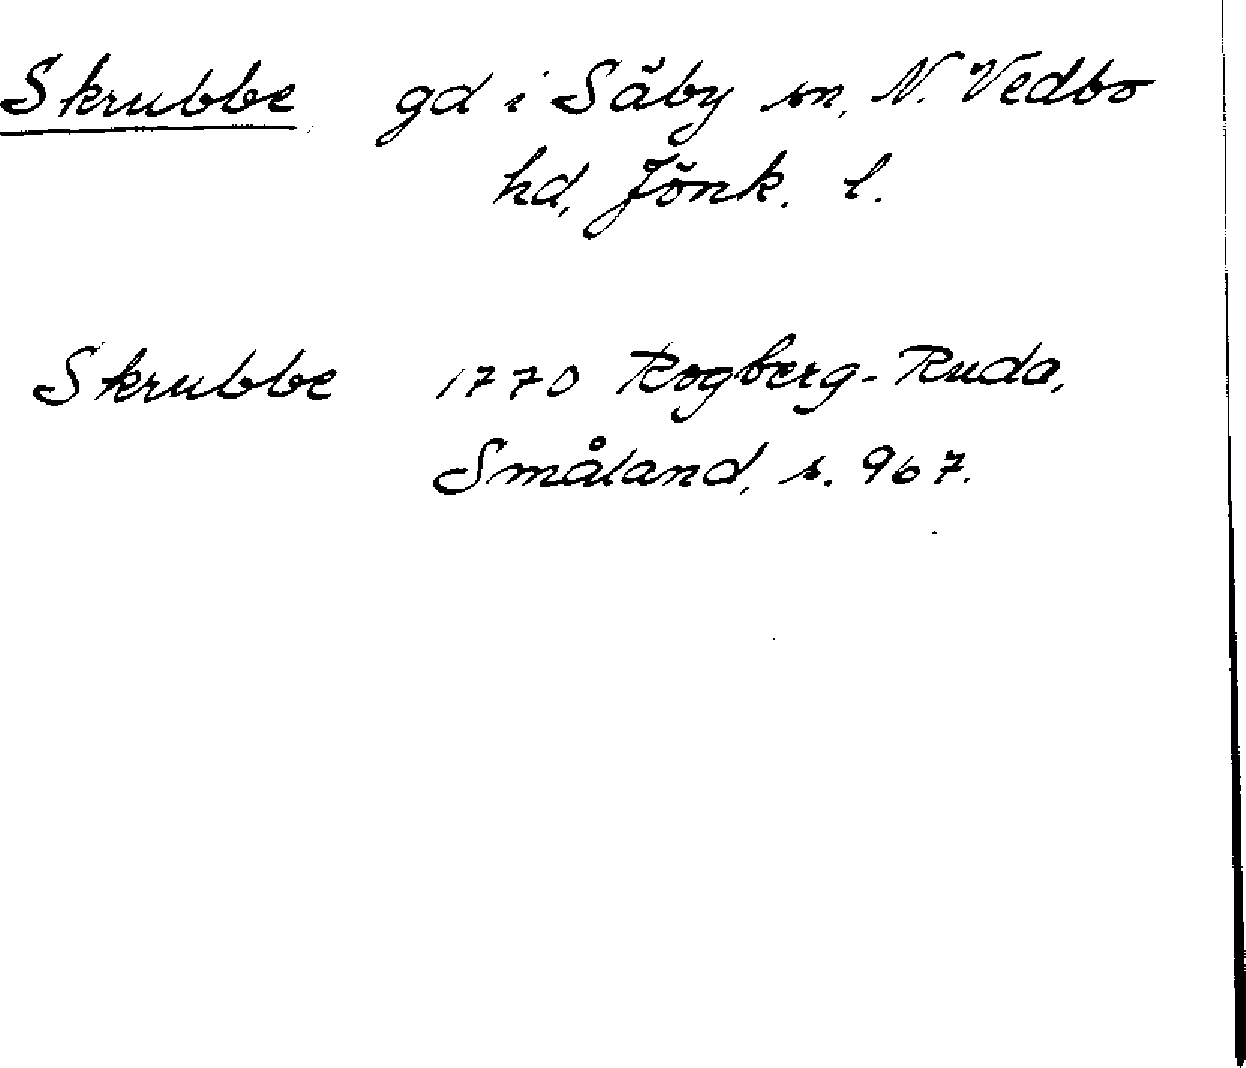 Skrubbe gd i Säby sn, N. Vedbo
hd, Jönk. l.
Skrubbe 1770 Rogberg-Ruda,
Småland, s. 967.